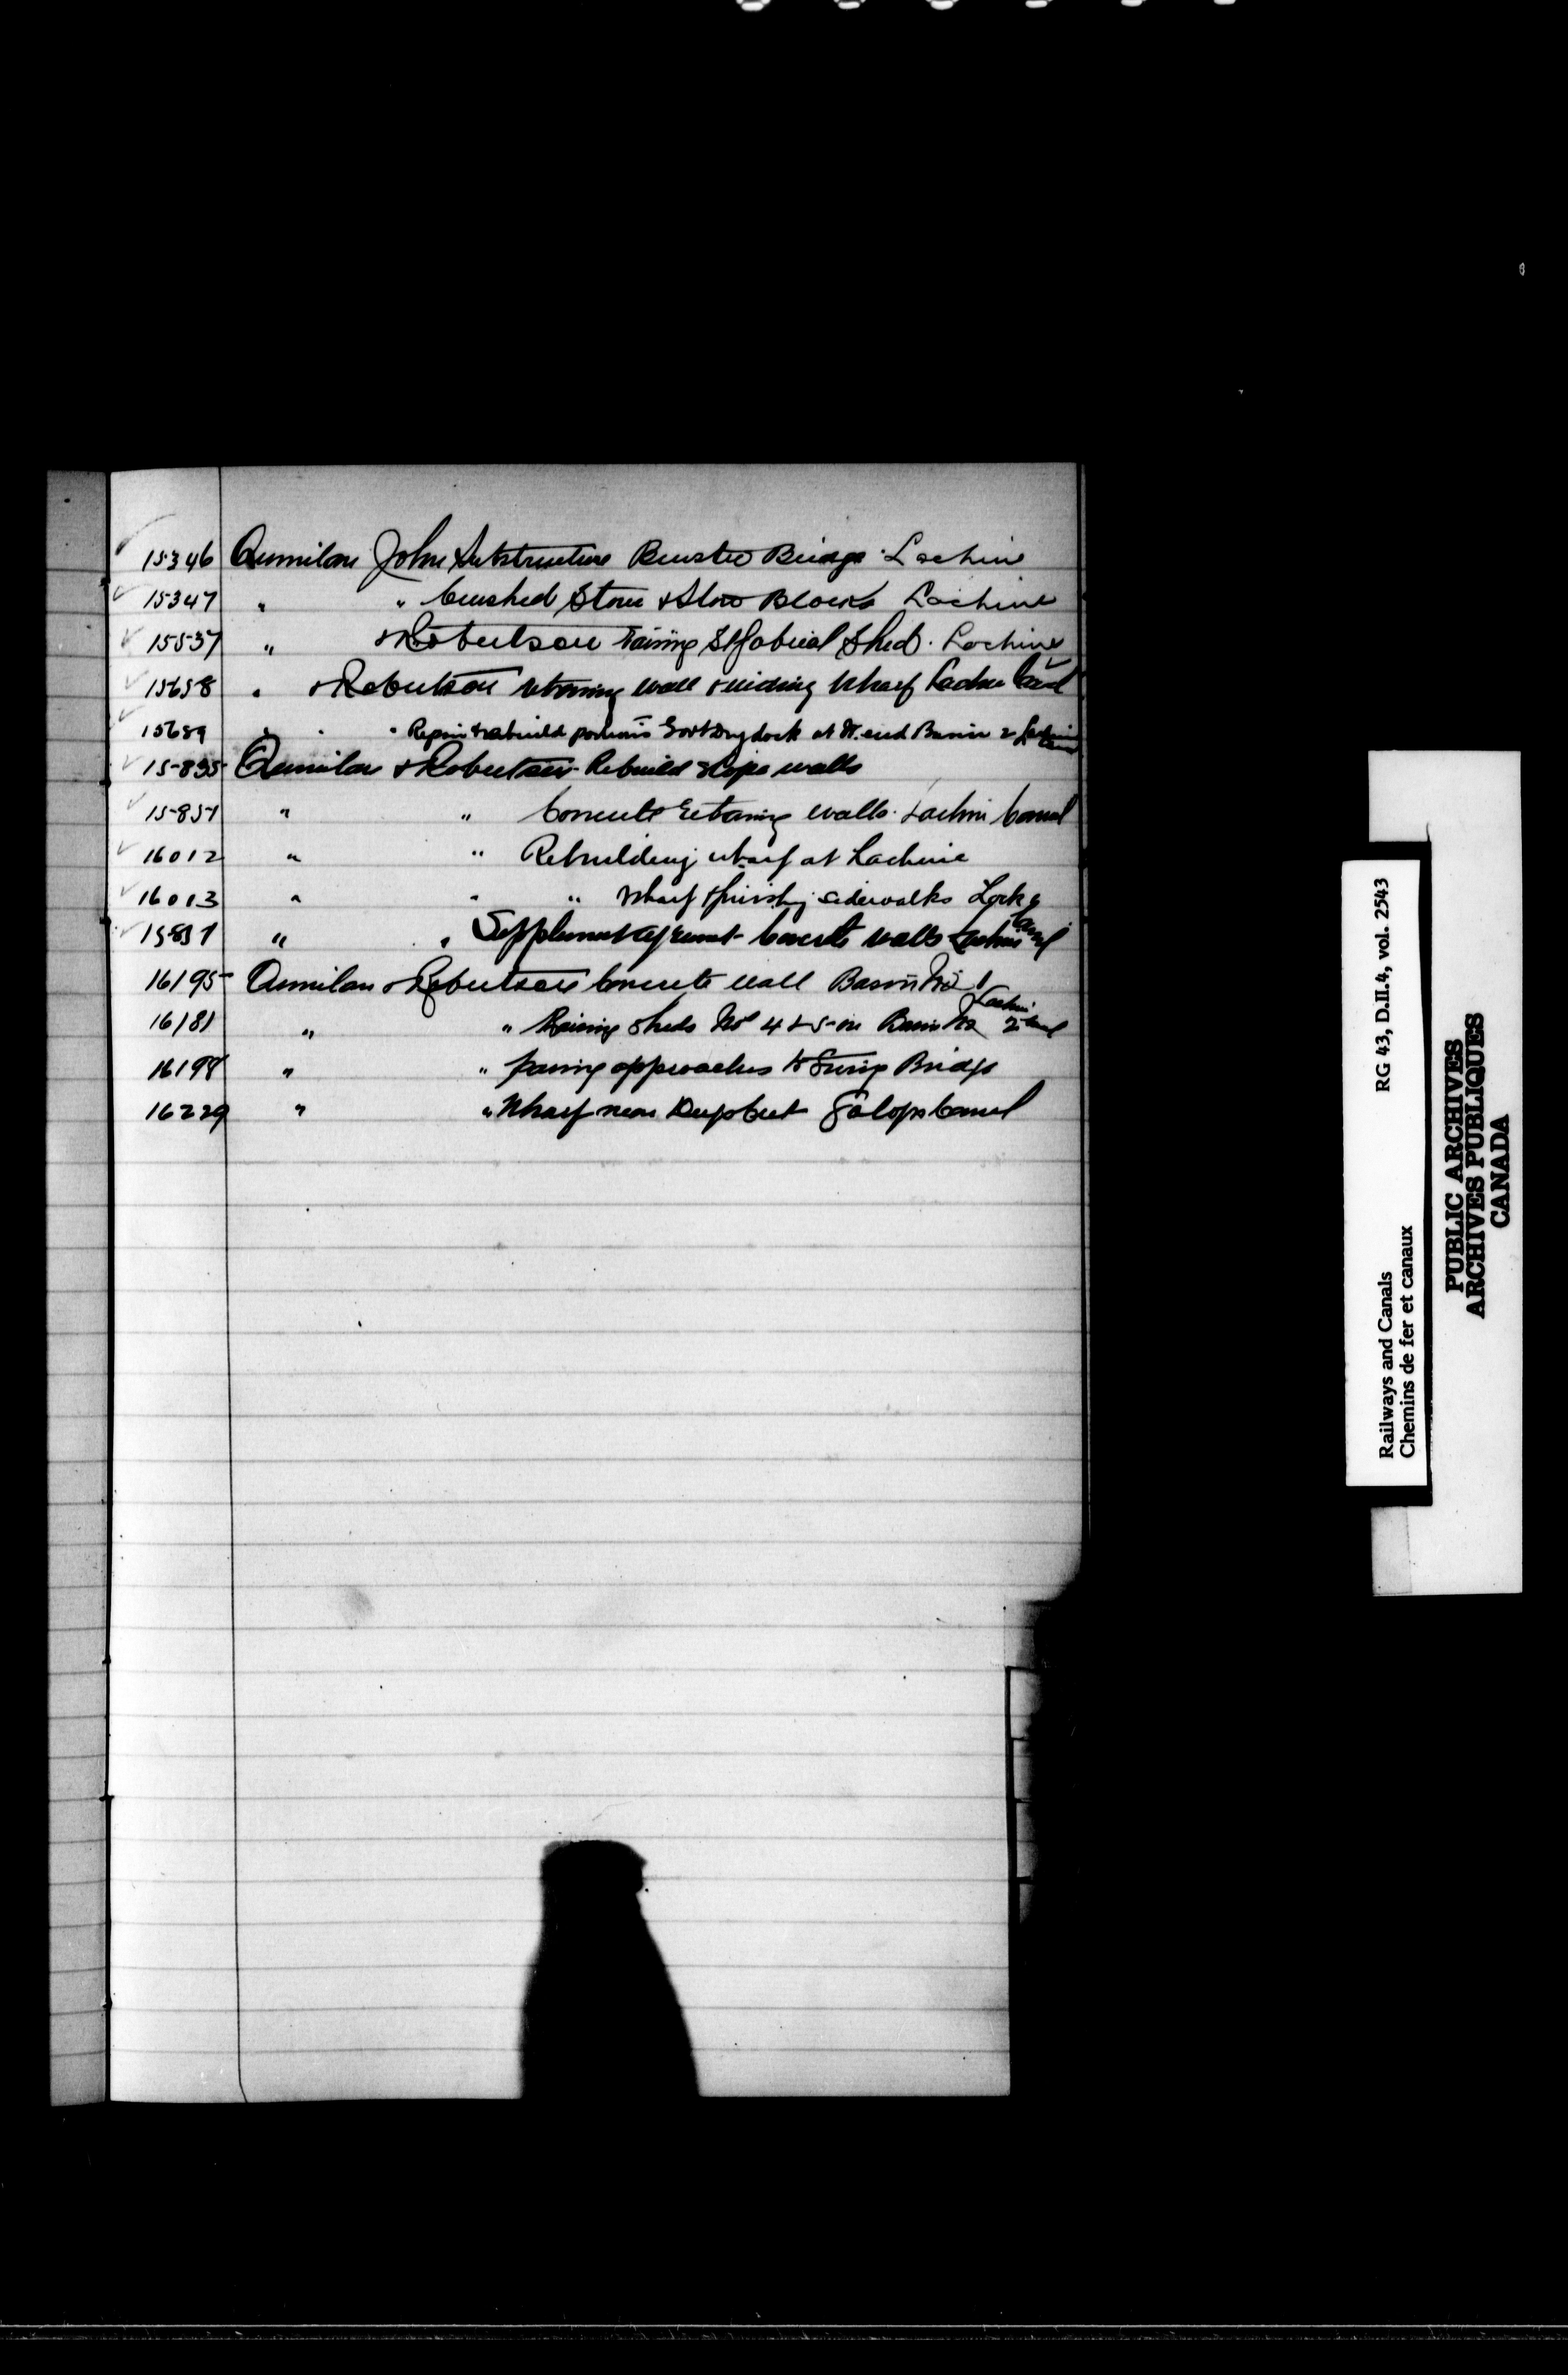 15346 Quinlan John Substructure Brewster Bridge Lachine
15347 " " Crushed Stone & Stone Blocks Lachine
15537 " & Robertson raising St Gabriel Shed. Lachine
15658 " & Robertson retaining wall & widing Wharf Lachine Canal
15689 " " " Repair & rebuild portions Govt Dry dock at W. end Basin 2 Lachine Canal
15835 Quinlan & Robertson Rebuild slope walls
15857 " " Concrete retaining walls. Lachine Canal
16012 " " Rebuilding wharf at Lachine
16013 " " " Wharf & finishing sidewalks Lock
15837 " " Supplement agreemt Concrete walls Lachine Canal
16195 Quinlan & Robertson Concrete wall Basin No 1
16181 " " Raising Sheds Nos 4 & 5 on Basin No 2 Lachine Canal
16198 " " paving approaches to Swing Bridge
16229 " " Wharf near Deep Cut Galops Canal
RG 43, D.II.4, vol. 2543
Railways and Canals
Chemins de fer et canaux
PUBLIC ARCHIVES
ARCHIVES PUBLIQUES
CANADA